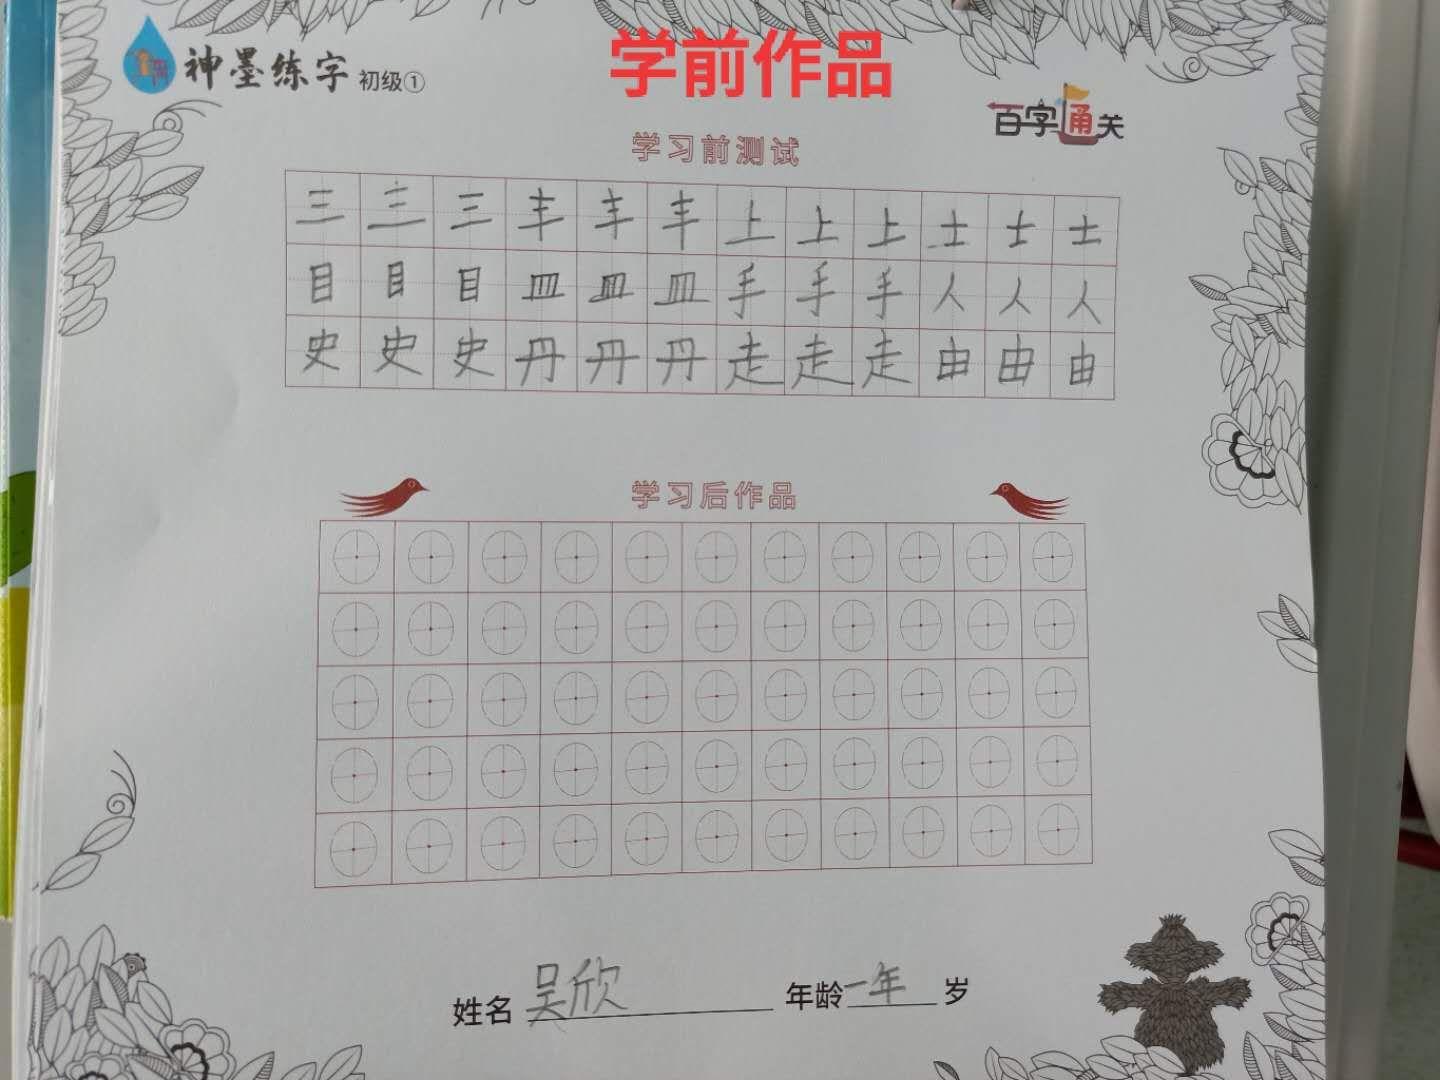 神墨练字 初级①
学前作品
百字通关
学习前测试
三三三丰丰丰上上上士士士
目目目皿皿皿手手手人人人
史史史丹丹丹走走走由由由
学习后作品
姓名 吴欣 年龄 一年 岁